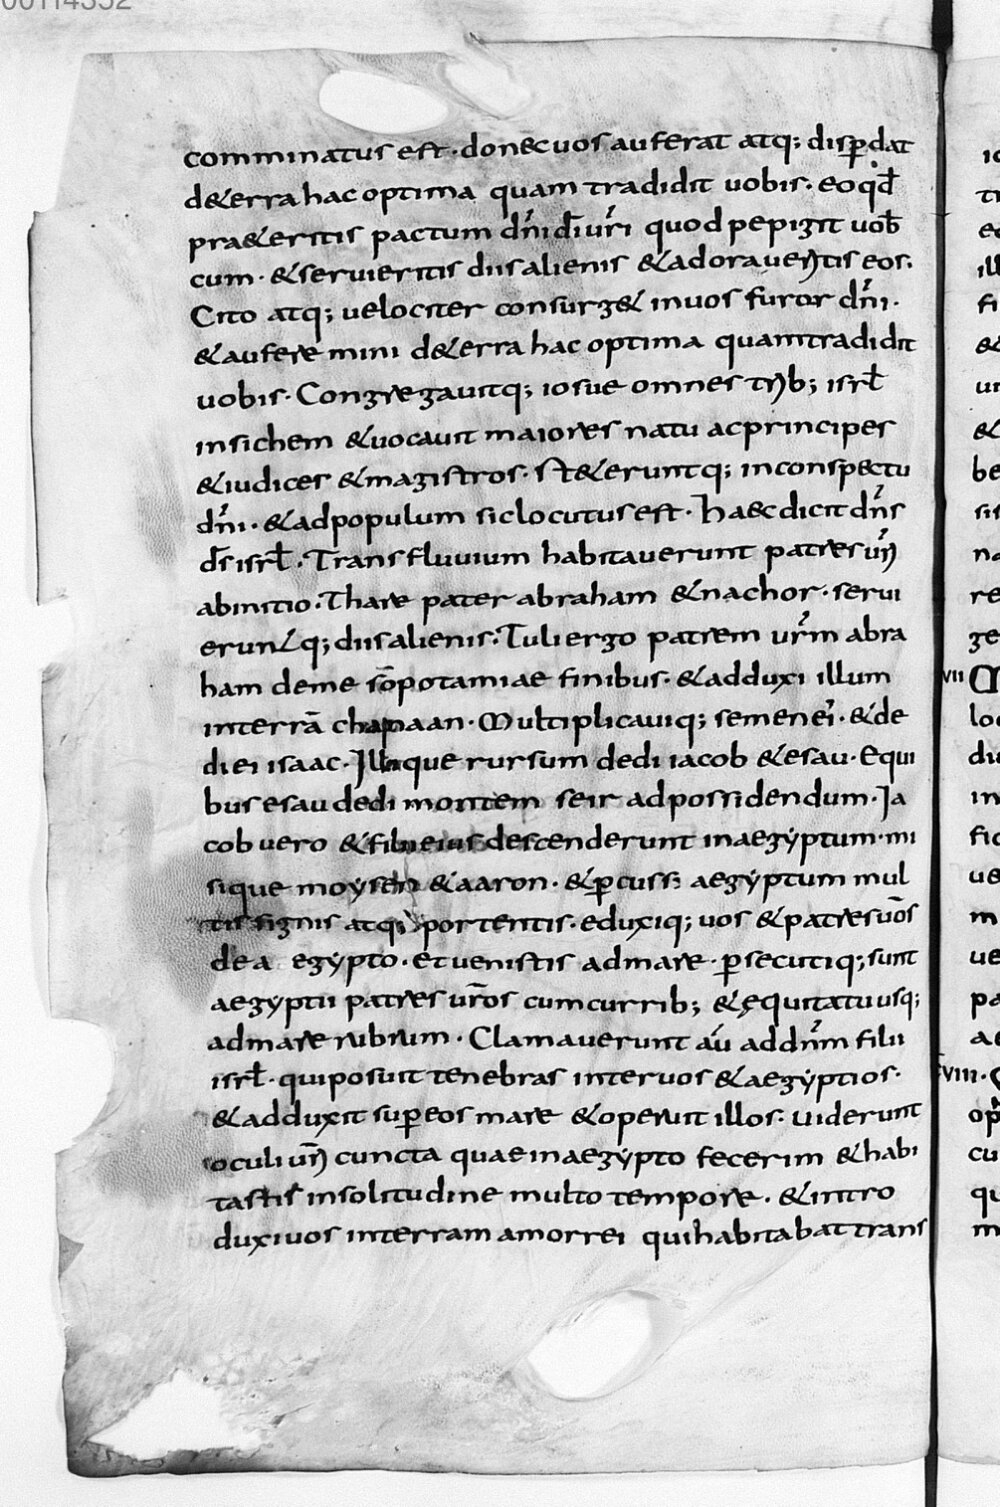 00114352
comminatus est · donec uos auferat atq; disꝑdat
de&erra hac optima quam tradidit uobis · eo qđ
pra&eritis pactum dn̄i dī uri quod pepigit uob̄
cum · & seruieritis diis alienis & adoraueritis eos.
Cito atq; uelociter consurg& in uos furor dn̄i ·
& aufere mini de&erra hac optima quam tradidit
uobis · Congregauitq; iosue omnes trib; isrł
in sichem & uocauit maiores natu ac principes
& iudices & magistros · st&eruntq; in conspectu
dn̄i · & ad populum sic locutus est · Haec dicit dn̄s
ds̄ isrł · Trans fluuium habitauerunt patres ur̄i
ab initio · Thare pater abraham & nachor · serui
eruntq; diis alienis · Tuli ergo patrem ur̄m abra
ham de mesōpotamiae finibus · & adduxi illum
in terrā chanaan · Multiplicauiq; semen ei · & de
di ei isaac · Illique rursum dedi iacob & esau · E qui
bus esau dedi montem seir ad possidendum · Ia
cob uero & filii eius descenderunt in aegyptum · mi
sique moysen & aaron · & ꝑcussi aegyptum mul
tis signis atq; portentis · eduxiq; uos & patres uōs
de a egypto · et uenistis ad mare · ꝑsecutiq; sunt
aegyptii patres ur̄os cum currib; & equitatu usq;
ad mare rubrum · Clamauerunt aū ad dn̄m filii
isrł · qui posuit tenebras inter uos & aegyptios ·
& adduxit suꝑ eos mare & operuit illos · uiderunt
oculi ur̄i cuncta quae in aegypto fecerim & habi
tastis in solitudine multo tempore · & intro
duxi uos in terram amorrei qui habitabat trans
VII
VIII ·